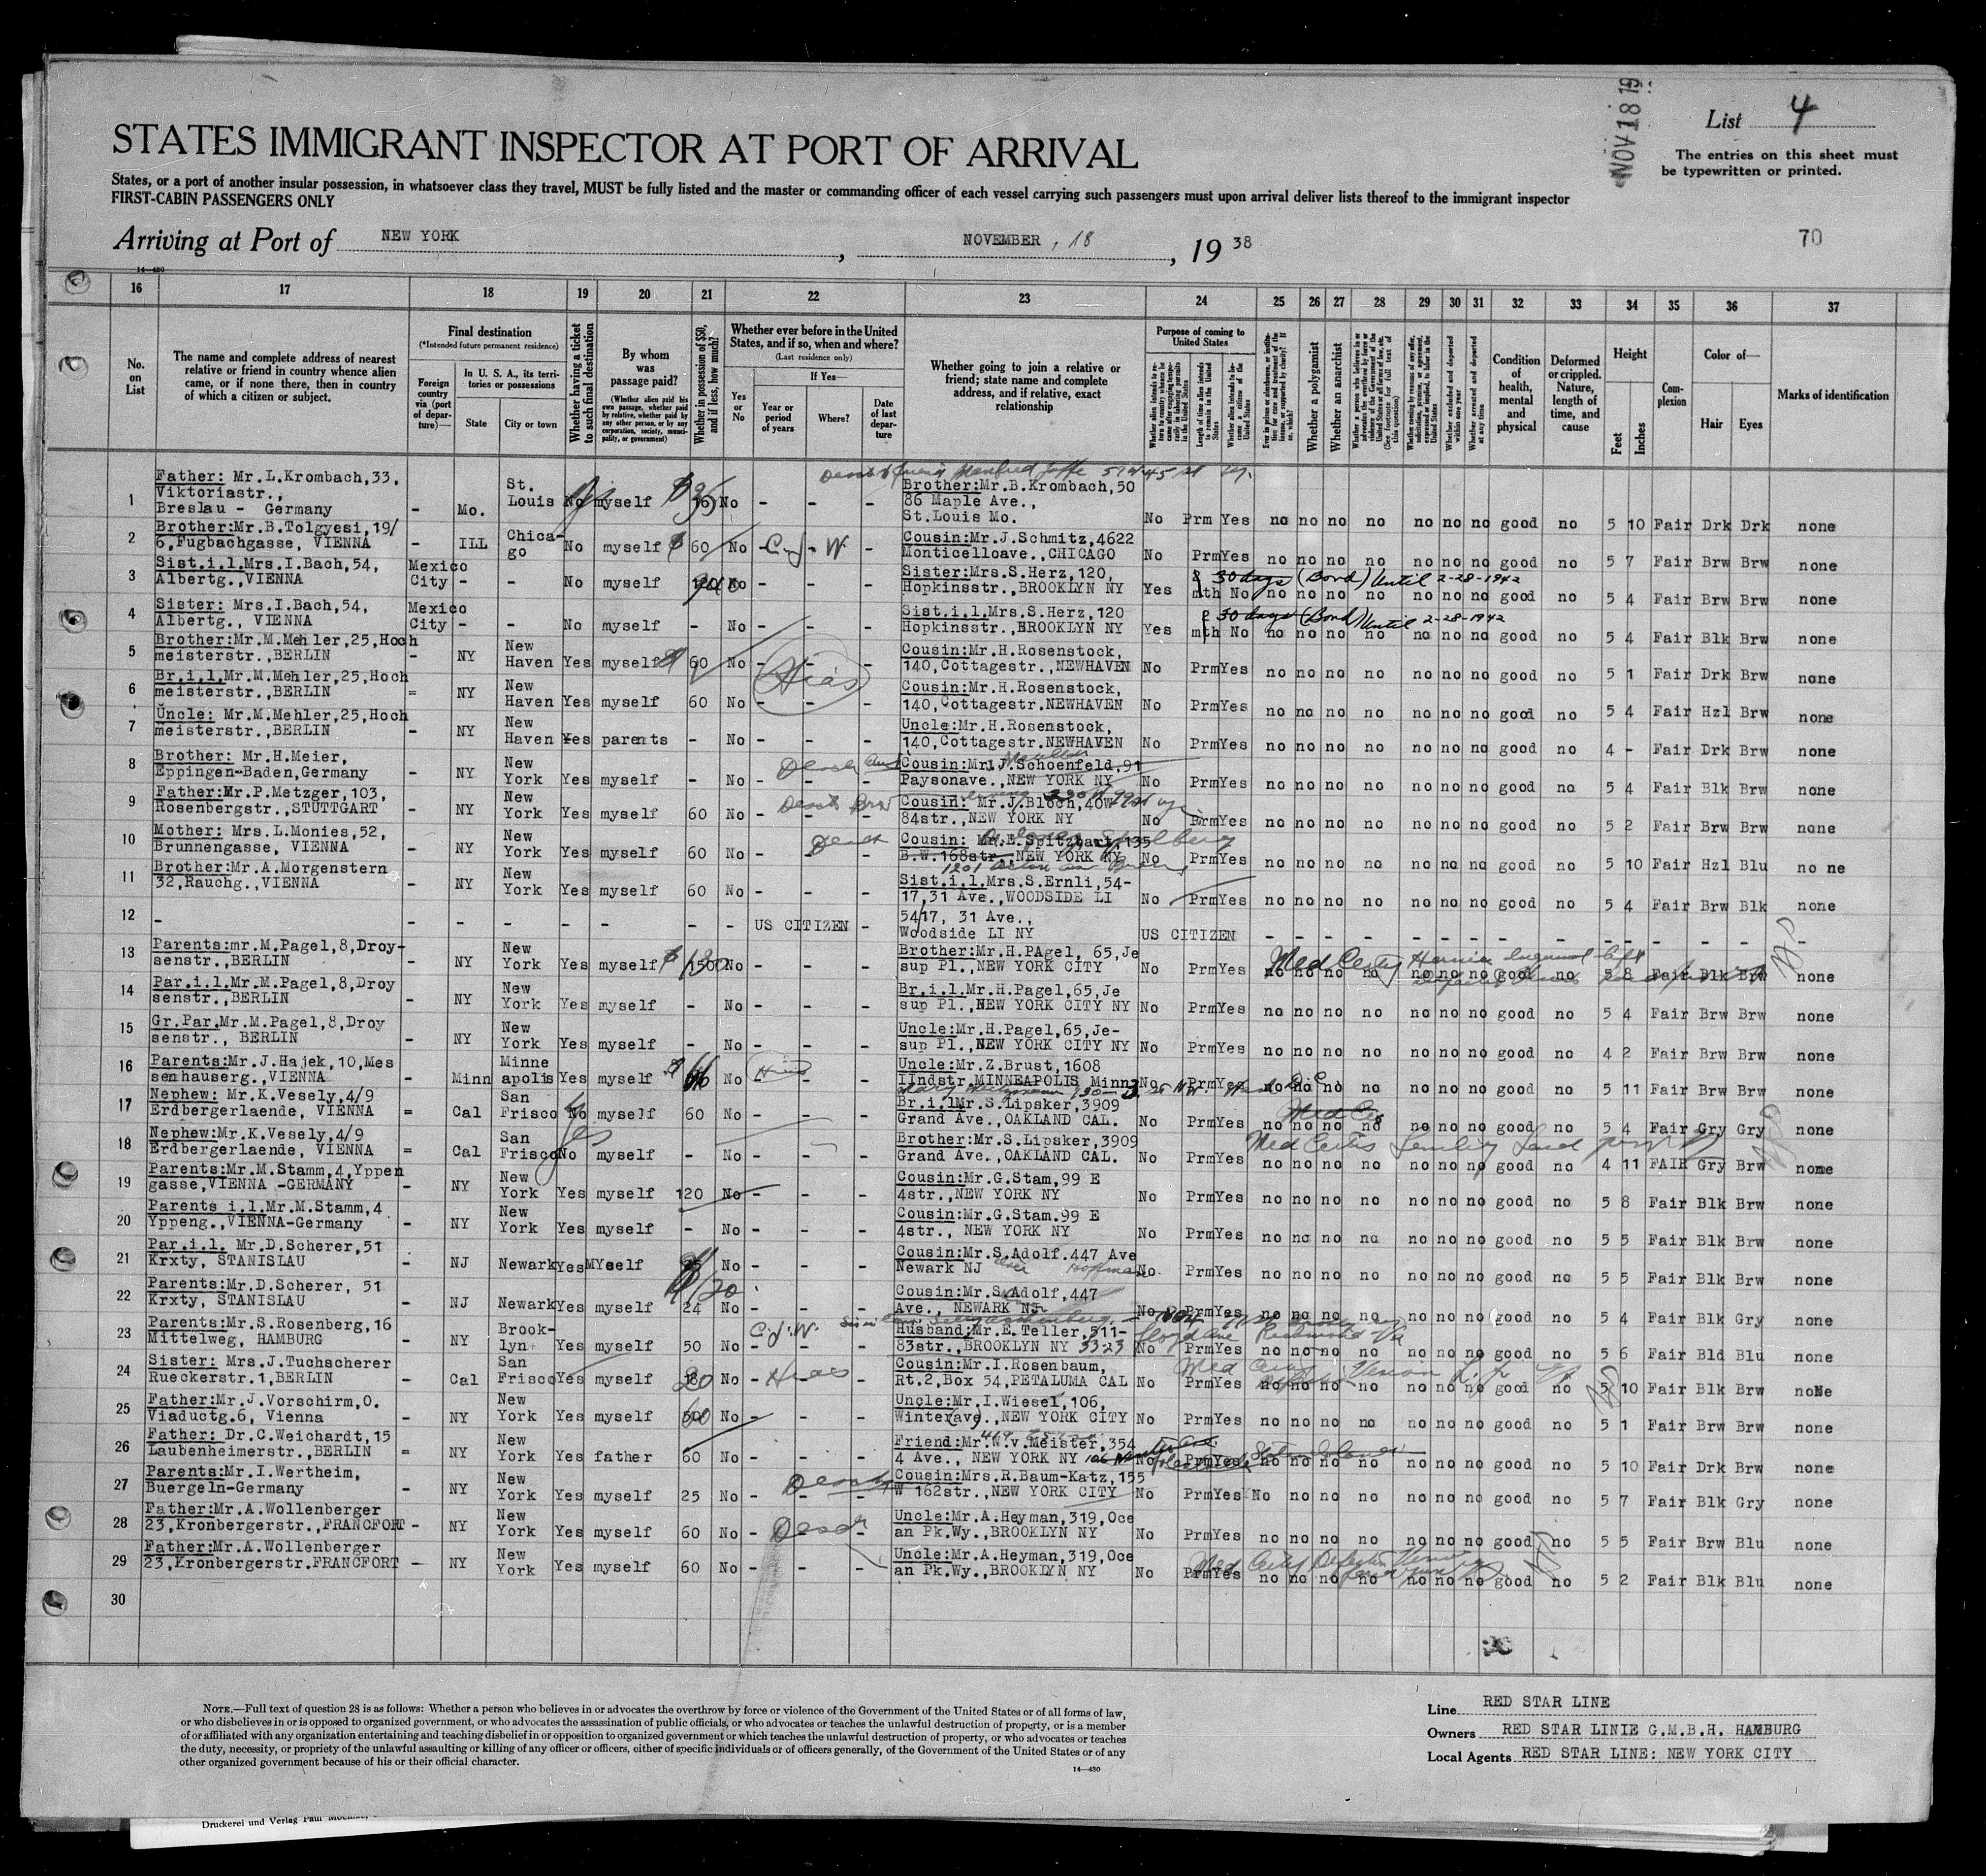 NOV 18 19
List 4
STATES IMMIGRANT INSPECTOR AT PORT OF ARRIVAL
The entries on this sheet must
be typewritten or printed.
States, or a port of another insular possession, in whatsoever class they travel, MUST be fully listed and the master or commanding officer of each vessel carrying such passengers must upon arrival deliver lists thereof to the immigrant inspector
FIRST-CABIN PASSENGERS ONLY
Arriving at Port of NEW YORK, NOVEMBER, 18, 19 38
70
14—430
16 17 18 19 20 21 22 23 24 25 26 27 28 29 30 31 32 33 34 35 36 37
No. on List
The name and complete address of nearest relative or friend in country whence alien came, or if none there, then in country of which a citizen or subject.
Final destination
(*Intended future permanent residence)
Foreign country via (port of departure)—
In U. S. A., its territories or possessions
State
City or town
Whether having a ticket to such final destination
By whom was passage paid?
(Whether alien paid his own passage, whether paid by relative, whether paid by any other person, or by any corporation, society, municipality, or government)
Whether in possession of $50, and if less, how much?
Whether ever before in the United States, and if so, when and where?
(Last residence only)
Yes or No
If Yes—
Year or period of years
Where?
Date of last departure
Whether going to join a relative or friend; state name and complete address, and if relative, exact relationship
Purpose of coming to United States
Whether alien intends to return to country whence he came after engaging temporarily in laboring pursuits in the United States
Length of time alien intends to remain in the United States
Whether alien intends to become a citizen of the United States
Ever in prison or almshouse, or institution for care and treatment of the insane, or supported by charity? If so, which?
Whether a polygamist
Whether an anarchist
Whether coming by reason of any offer, solicitation, promise, or agreement, expressed or implied, to labor in the United States
Whether excluded and deported within one year
Whether arrested and deported at any time
Condition of health, mental and physical
Deformed or crippled. Nature, length of time, and cause
Height
Feet
Inches
Complexion
Color of—
Hair
Eyes
Marks of identification
1 Father: Mr.L.Krombach,33, Viktoriastr., Breslau - Germany - Mo. St. Louis No myself No - - Brother:Mr.B.Krombach,50 86 Maple Ave., St.Louis Mo. No Prm Yes no no no no no no no good no 5 10 Fair Drk Drk none
2 Brother:Mr.B.Tolgyesi,19/ 6,Fugbachgasse, VIENNA - ILL Chicago No myself $ 60 No - - - Cousin:Mr.J.Schmitz,4622 Monticelloave.,CHICAGO No PrmYes no no no no no no no good no 5 7 Fair Brw Brw none
3 Sist.i.l.Mrs.I.Bach,54, Albertg.,VIENNA Mexico City - - No myself No - - - Sister:Mrs.S.Herz,120, Hopkinsstr.,BROOKLYN NY Yes 30 days (Bond) Until 2-28-1942 mth No no no no no no no no good no 5 4 Fair Brw Brw none
4 Sister: Mrs.I.Bach,54, Albertg., VIENNA Mexico City - - No myself - No - - - Sist.i.l.Mrs.S.Herz,120 Hopkinsstr.,BROOKLYN NY Yes 30 days (Bond) Until 2-28-1942 mth No no no no no no no no good no 5 4 Fair Blk Brw none
5 Brother:Mr.M.Mehler,25,Hoch meisterstr.,BERLIN - NY New Haven Yes myself 60 No - - - Cousin:Mr.H.Rosenstock, 140,Cottagestr.,NEWHAVEN No PrmYes no no no no no no no good no 5 1 Fair Drk Brw none
Hias
6 Br.i.l.Mr.M.Mehler,25,Hoch meisterstr.,BERLIN = NY New Haven Yes myself 60 No - - - Cousin:Mr.H.Rosenstock, 140,Cottagestr.NEWHAVEN No PrmYes no no no no no no no good no 5 4 Fair Hzl Brw none
7 Uncle: Mr.M.Mehler,25,Hoch meisterstr.,BERLIN - NY New Haven Yes parents - No - - - Uncle:Mr.H.Rosenstock, 140,Cottagestr.NEWHAVEN No PrmYes no no no no no no no good no 4 - Fair Drk Brw none
8 Brother: Mr.H.Meier, Eppingen-Baden,Germany - NY New York Yes myself - No - - - Cousin:Mr.J.Schoenfeld,91 Paysonave.,NEW YORK NY No PrmYes no no no no no no no good no 5 4 Fair Blk Brw none
9 Father:Mr.P.Metzger,103, Rosenbergstr.,STUTTGART - NY New York Yes myself 60 No - - - Cousin: Mr.J.Bloch,40W 84str.,NEW YORK NY No PrmYes no no no no no no no good no 5 2 Fair Brw Brw none
10 Mother: Mrs.L.Monies,52, Brunnengasse, VIENNA - NY New York Yes myself 60 No - - - Cousin: B.W.168str.,NEW YORK NY No PrmYes no no no no no no no good no 5 10 Fair Hzl Blu no ne
11 Brother:Mr.A.Morgenstern 32,Rauchg.,VIENNA - NY New York Yes myself 60 No - - - Sist.i.l.Mrs.S.Ernli,54- 17,31 Ave.,WOODSIDE LI No PrmYes no no no no no no no good no 5 4 Fair Brw Blk none
12 - - - - - - - - US CITIZEN - 5417, 31 Ave., Woodside LI NY US CITIZEN - - - - - - - - - - - - - - -
13 Parents:mr.M.Pagel,8,Droy- senstr.,BERLIN - NY New York Yes myself No - - - Brother:Mr.H.PAgel, 65,Je sup Pl.,NEW YORK CITY No PrmYes no no no no no no no good no 5 8 Fair Blk Brw none
14 Par.i.l.Mr.M.Pagel,8,Droy senstr.,BERLIN - NY New York Yes myself - No - - - Br.i.l.Mr.H.Pagel,65,Je sup Pl.,NEW YORK CITY NY No PrmYes no no no no no no no good no 5 4 Fair Brw Brw none
15 Gr.Par.Mr.M.Pagel,8,Droy senstr., BERLIN - NY New York Yes myself - No - - - Uncle:Mr.H.Pagel,65,Je- sup Pl.,NEW YORK CITY NY No PrmYes no no no no no no no good no 4 2 Fair Brw Brw none
16 Parents:Mr.J.Hajek,10,Mes senhauserg.,VIENNA - Minn Minne apolis Yes myself No - - - Hias Uncle:Mr.Z.Brust,1608 IIndstr.MINNEAPOLIS Minn No PrmYes no no no no no no no good no 5 11 Fair Brw Brw none
17 Nephew: Mr.K.Vesely,4/9 Erdbergerlaende, VIENNA = Cal San Frisco No myself 60 No - - - Br.i.lMr.S.Lipsker,3909 Grand Ave.,OAKLAND CAL. No PrmYes no no no no no no no good no 5 4 Fair Gry Gry none
18 Nephew:Mr.K.Vesely,4/9 Erdbergerlaende, VIENNA = Cal San Frisco No yes myself - No - - Brother:Mr.S.Lipsker,3909 Grand Ave.,OAKLAND CAL. No PrmYes no no no no no no no good no 4 11 FAIR Gry Brw none
19 Parents:Mr.M.Stamm,4,Yppen gasse,VIENNA -GERMANY - NY New York Yes myself 120 No - - - Cousin:Mr.G.Stam,99 E 4str.,NEW YORK NY No PrmYes no no no no no no no good no 5 8 Fair Blk Brw none
20 Parents i.l.Mr.M.Stamm,4 Yppeng.,VIENNA-Germany - NY New York Yes myself - No - - - Cousin:Mr.G.Stam.99 E 4str., NEW YORK NY No PrmYes no no no no no no no good no 5 5 Fair Blk Brw none
21 Par.i.l. Mr.D.Scherer,51 Krxty, STANISLAU - NJ Newark Yes MYself No - - - Cousin:Mr.S.Adolf.447 Ave Newark NJ No PrmYes no no no no no no no good no 5 5 Fair Blk Brw none
22 Parents:Mr.D.Scherer, 51 Krxty, STANISLAU - NJ Newark Yes myself 24 No - - - Cousin:Mr.S.Adolf,447 Ave., NEWARK NJ No PrmYes no no no no no no no good no 5 4 Fair Blk Gry none
23 Parents:Mr.S.Rosenberg,16 Mittelweg, HAMBURG - NY Brook- lyn Yes myself 50 No - - - Husband:Mr.E.Teller,311- 83str.,BROOKLYN NY No PrmYes no no no no no no no good no 5 6 Fair Bld Blu none
24 Sister: Mrs.J.Tuchscherer Rueckerstr.1,BERLIN - Cal San Frisco Yes myself No - Hias - Cousin:Mr.I.Rosenbaum, Rt.2,Box 54,PETALUMA CAL No PrmYes no no no no no no no good no 5 10 Fair Blk Brw noNe
25 Father:Mr.J.Vorschirm,O. Viaductg.6, Vienna - NY New York Yes myself No - - - Uncle:Mr.I.Wiesel,106, Winter ave.,NEW YORK CITY No PrmYes no no no no no no no good no 5 1 Fair Brw Brw none
26 Father: Dr.C.Weichardt,15 Laubenheimerstr.,BERLIN = NY New York Yes father 60 No - - - Friend:Mr.W.v.Meister,354 4 Ave., NEW YORK NY No PrmYes no no no no no no no good no 5 10 Fair Drk Brw none
27 Parents:Mr.I.Wertheim, Buergeln-Germany - NY New York Yes myself 25 No - - - Cousin:Mrs.R.Baum-Katz,155 W 162str.,NEW YORK CITY No PrmYes No no no no no no no good no 5 7 Fair Blk Gry none
28 Father:Mr.A.Wollenberger 23,Kronbergerstr.,FRANCFORT - NY New York Yes myself 60 No - - - Uncle:Mr.A.Heyman,319,Oce an Pk.Wy.,BROOKLYN NY No PrmYes no no no no no no no good no 5 5 Fair Brw Blu none
29 Father:Mr.A.Wollenberger 23,Kronbergerstr.FRANCFORT - NY New York Yes myself 60 No - - - Uncle:Mr.A.Heyman,319,Oce an Pk.Wy.,BROOKLYN NY No PrmYes no no no no no no no good no 5 2 Fair Blk Blu none
30
NOTE.—Full text of question 28 is as follows: Whether a person who believes in or advocates the overthrow by force or violence of the Government of the United States or of all forms of law,
or who disbelieves in or is opposed to organized government, or who advocates the assassination of public officials, or who advocates or teaches the unlawful destruction of property, or is a member
of or affiliated with any organization entertaining and teaching disbelief in or opposition to organized government or which teaches the unlawful destruction of property, or who advocates or teaches
the duty, necessity, or propriety of the unlawful assaulting or killing of any officer or officers, either of specific individuals or of officers generally, of the Government of the United States or of any
other organized government because of his or their official character.
14—430
Line RED STAR LINE
Owners RED STAR LINIE G.M.B.H. HAMBURG
Local Agents RED STAR LINE: NEW YORK CITY
Druckerei und Verlag Paul